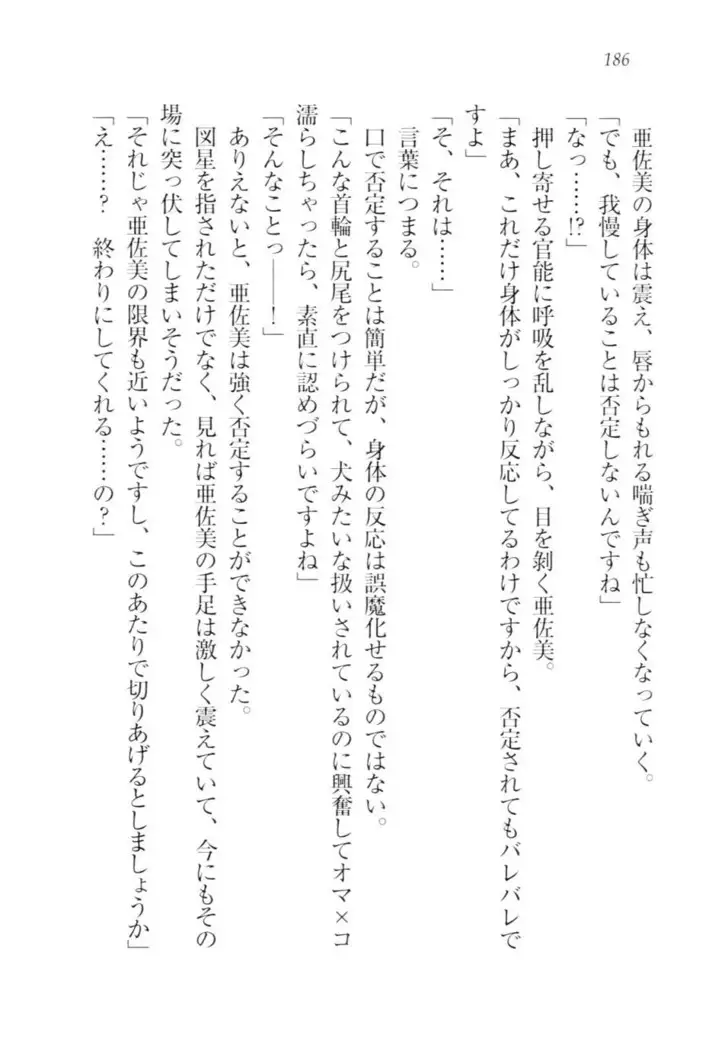 186
亜佐美の身体は震え、唇からもれる喘ぎ声も忙しなくなっていく。
「でも、我慢していることは否定しないんですね」
「なっ……!?」
押し寄せる官能に呼吸を乱しながら、目を剝く亜佐美。
「まあ、これだけ身体がしっかり反応してるわけですから、否定されてもバレバレで
すよ」
「そ、それは……」
言葉につまる。
口で否定することは簡単だが、身体の反応は誤魔化せるものではない。
「こんな首輪と尻尾をつけられて、犬みたいな扱いされているのに興奮してオマ×コ
濡らしちゃったら、素直に認めづらいですよね」
「そんなことっ――！」
ありえないと、亜佐美は強く否定することができなかった。
図星を指されただけでなく、見れば亜佐美の手足は激しく震えていて、今にもその
場に突っ伏してしまいそうだった。
「それじゃ亜佐美の限界も近いようですし、このあたりで切りあげるとしましょうか」
「え……？　終わりにしてくれる……の？」